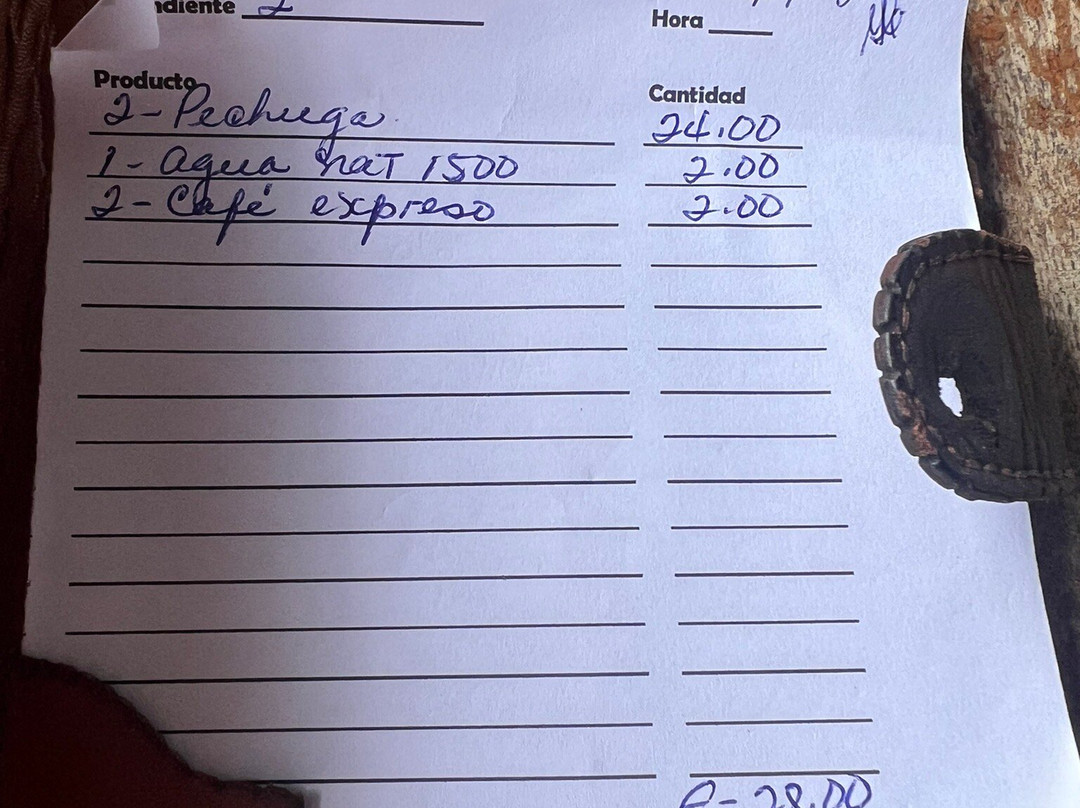 ndiente 2
Hora
Producto Cantidad
2-Pechuga 24.00
1-agua nat 1500 2.00
2-Café expreso 2.00
28.00